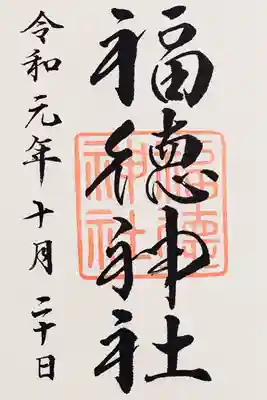 福徳神社
令和元年十月二十日
福徳神社